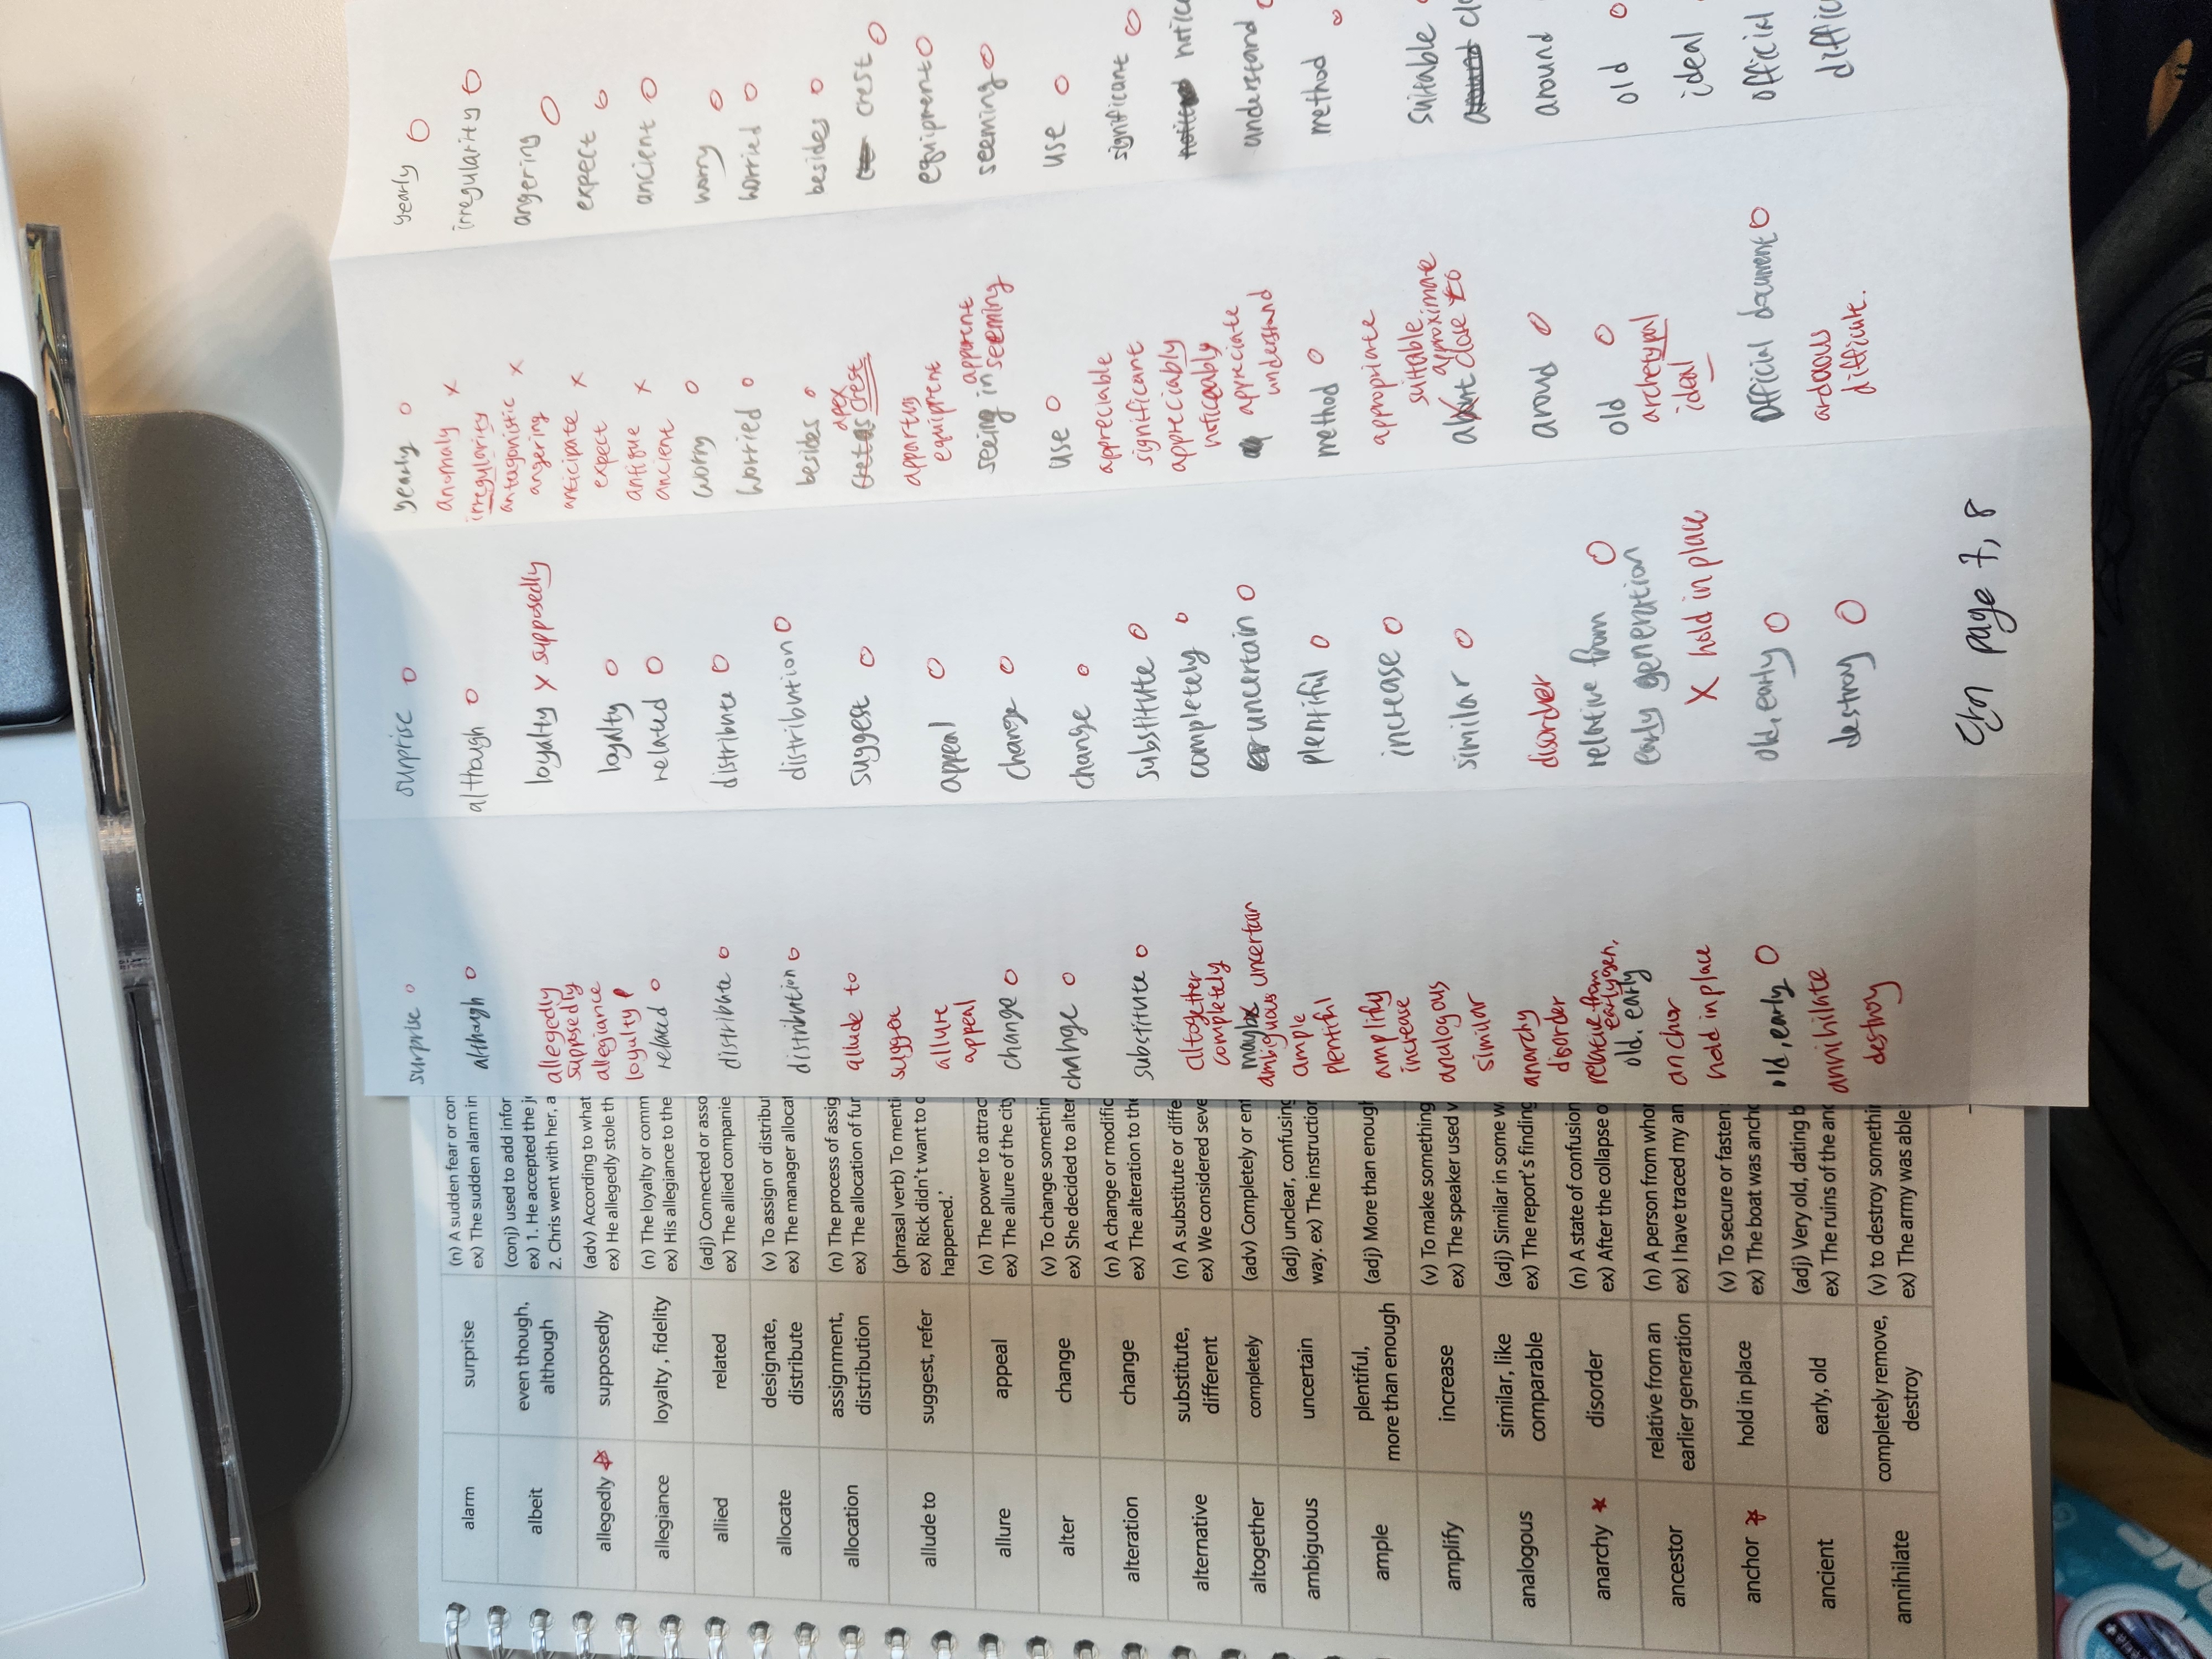 alarm
surprise
(n) A sudden fear or con
ex) The sudden alarm in
albeit
even though,
although
(conj) used to add infor
ex) 1. He accepted the j
2. Chris went with her, a
allegedly
supposedly
(adv) According to what
ex) He allegedly stole th
allegiance
loyalty , fidelity
(n) The loyalty or comm
ex) His allegiance to the
allied
related
(adj) Connected or asso
ex) The allied companie
allocate
designate,
distribute
(v) To assign or distribu
ex) The manager allocat
allocation
assignment,
distribution
(n) The process of assig
ex) The allocation of fur
allude to
suggest, refer
(phrasal verb) To menti
ex) Rick didn't want to c
happened.'
allure
appeal
(n) The power to attrac
ex) The allure of the city
alter
change
(v) To change somethin
ex) She decided to alter
alteration
change
(n) A change or modific
ex) The alteration to the
alternative
substitute,
different
(n) A substitute or diffe
ex) We considered seve
altogether
completely
(adv) Completely or ent
ambiguous
uncertain
(adj) unclear, confusing
way. ex) The instruction
ample
plentiful,
more than enough
(adj) More than enough
amplify
increase
(v) To make something
ex) The speaker used v
analogous
similar, like
comparable
(adj) Similar in some w
ex) The report's finding
anarchy
disorder
(n) A state of confusion
ex) After the collapse o
ancestor
relative from an
earlier generation
(n) A person from whor
ex) I have traced my an
anchor
hold in place
(v) To secure or fasten
ex) The boat was ancho
ancient
early, old
(adj) Very old, dating b
ex) The ruins of the anc
annihilate
completely remove,
destroy
(v) to destroy somethi
ex) The army was able
surprise
although
allegedly
supposedly
allegiance
loyalty
related
distribute
distribution
allude to
suggest
allure
appeal
change
chahge
substitute
altogether
completely
maybe
ambiguous uncertain
ample
plentiful
amplify
increase
analogous
similar
anarchy
disorder
relative from
early gen,
old. early
anchor
hold in place
old, early
annihilate
destroy
surprise
although
loyalty x supposedly
loyalty
related
distribute
distribution
suggest
appeal
change
change
substitute
completely
uncertain
plentiful
increase
similar
disorder
relative from
early generation
x hold in place
old, early
destroy
단어 page 7, 8
yearly
anomaly x
irregularity
antagonistic x
angering
anticipate x
expect
antique x
ancient
worry
worried
besides
apex
crest
appartus
equiprent
apparent
seeing in seeming
use
appreciable
significant
appreciably
noticeably
appreciate
understand
method
appropriate
suitable
approximate
close to
around
old
archetypal
ideal
official document
arduous
difficult.
yearly
irregularity
angering
expect
ancient
worry
worried
besides
crest
equiprent
seeming
use
significant
notice
understand
method
suitable
clo
around
old
ideal
official
diffic